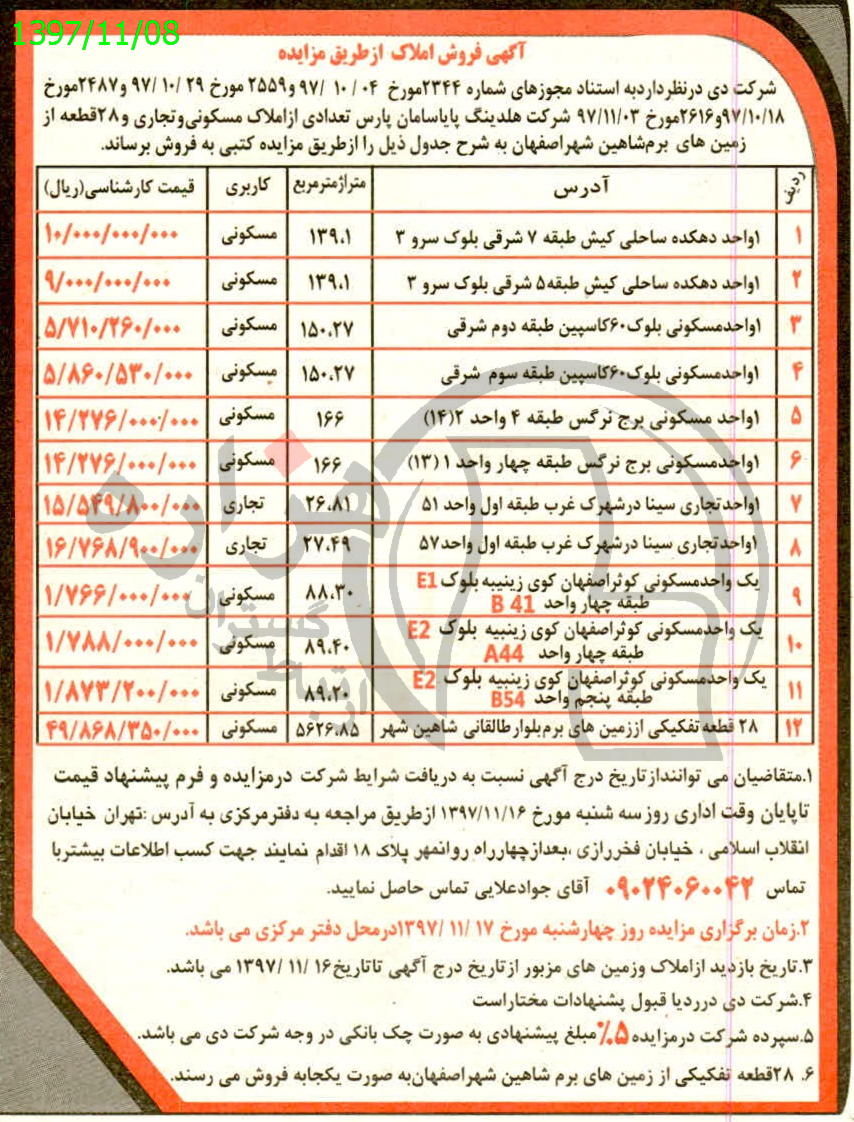 1397/11/08
آگهی فروش املاک ازطریق مزایده
شرکت دی درنظرداردبه استناد مجوزهای شماره ۲۳۴۴مورخ ۰۴/ ۱۰ /۹۷ و۲۵۵۹ مورخ ۲۹ /۱۰ /۹۷ و۲۴۸۷مورخ
۹۷/۱۰/۱۸و۲۶۱۶مورخ ۹۷/۱۱/۰۳ شرکت هلدینگ پایاسامان پارس تعدادی ازاملاک مسکونی‌وتجاری و۲۸قطعه از
زمین های برم‌شاهین شهراصفهان به شرح جدول ذیل را ازطریق مزایده کتبی به فروش برساند.
ردیف آدرس متراژمترمربع کاربری قیمت کارشناسی(ریال)
۱ ۱واحد دهکده ساحلی کیش طبقه ۷ شرقی بلوک سرو ۳ ۱۳۹.۱ مسکونی ۱۰/۰۰۰/۰۰۰/۰۰۰
۲ ۱واحد دهکده ساحلی کیش طبقه۵ شرقی بلوک سرو ۳ ۱۳۹.۱ مسکونی ۹/۰۰۰/۰۰۰/۰۰۰
۳ ۱واحدمسکونی بلوک۶۰کاسپین طبقه دوم شرقی ۱۵۰.۲۷ مسکونی ۵/۷۱۰/۲۶۰/۰۰۰
۴ ۱واحدمسکونی بلوک۶۰کاسپین طبقه سوم شرقی ۱۵۰.۲۷ مسکونی ۵/۸۶۰/۵۳۰/۰۰۰
۵ ۱واحد مسکونی برج نرگس طبقه ۴ واحد ۲(۱۴) ۱۶۶ مسکونی ۱۴/۲۷۶/۰۰۰/۰۰۰
۶ ۱واحدمسکونی برج نرگس طبقه چهار واحد ۱ (۱۳) ۱۶۶ مسکونی ۱۴/۲۷۶/۰۰۰/۰۰۰
۷ ۱واحدتجاری سینا درشهرک غرب طبقه اول واحد ۵۱ ۲۶.۸۱ تجاری ۱۵/۵۴۹/۸۰۰/۰۰۰
۸ ۱واحدتجاری سینا درشهرک غرب طبقه اول واحد۵۷ ۲۷.۴۹ تجاری ۱۶/۷۶۸/۹۰۰/۰۰۰
۹ یک واحدمسکونی کوثراصفهان کوی زینبیه بلوک E1
طبقه چهار واحد B 41 ۸۸.۳۰ مسکونی ۱/۷۶۶/۰۰۰/۰۰۰
۱۰ یک واحدمسکونی کوثراصفهان کوی زینبیه بلوک E2
طبقه چهار واحد A44 ۸۹.۴۰ مسکونی ۱/۷۸۸/۰۰۰/۰۰۰
۱۱ یک واحدمسکونی کوثراصفهان کوی زینبیه بلوک E2
طبقه پنجم واحد B54 ۸۹.۲۰ مسکونی ۱/۸۷۳/۲۰۰/۰۰۰
۱۲ ۲۸ قطعه تفکیکی اززمین های برم‌بلوارطالقانی شاهین شهر ۵۶۲۶.۸۵ مسکونی ۴۹/۸۶۸/۳۵۰/۰۰۰
هزاره
گستران
ارتباط
۱.متقاضیان می توانندازتاریخ درج آگهی نسبت به دریافت شرایط شرکت درمزایده و فرم پیشنهاد قیمت
تاپایان وقت اداری روزسه شنبه مورخ ۱۳۹۷/۱۱/۱۶ ازطریق مراجعه به دفترمرکزی به آدرس :تهران خیابان
انقلاب اسلامی ، خیابان فخررازی ،بعدازچهارراه روانمهر پلاک ۱۸ اقدام نمایند جهت کسب اطلاعات بیشتربا
تماس ۰۹۰۲۴۰۶۰۰۴۲ آقای جوادعلایی تماس حاصل نمایید.
۲.زمان برگزاری مزایده روز چهارشنبه مورخ ۱۷ /۱۱ /۱۳۹۷درمحل دفتر مرکزی می باشد.
۳.تاریخ بازدید ازاملاک وزمین های مزبور ازتاریخ درج آگهی تاتاریخ۱۶ /۱۱ /۱۳۹۷ می باشد.
۴.شرکت دی درردیا قبول پشنهادات مختاراست
۵.سپرده شرکت درمزایده ۵٪مبلغ پیشنهادی به صورت چک بانکی در وجه شرکت دی می باشد.
۶. ۲۸قطعه تفکیکی از زمین های برم شاهین شهراصفهان‌به صورت یکجابه فروش می رسند.